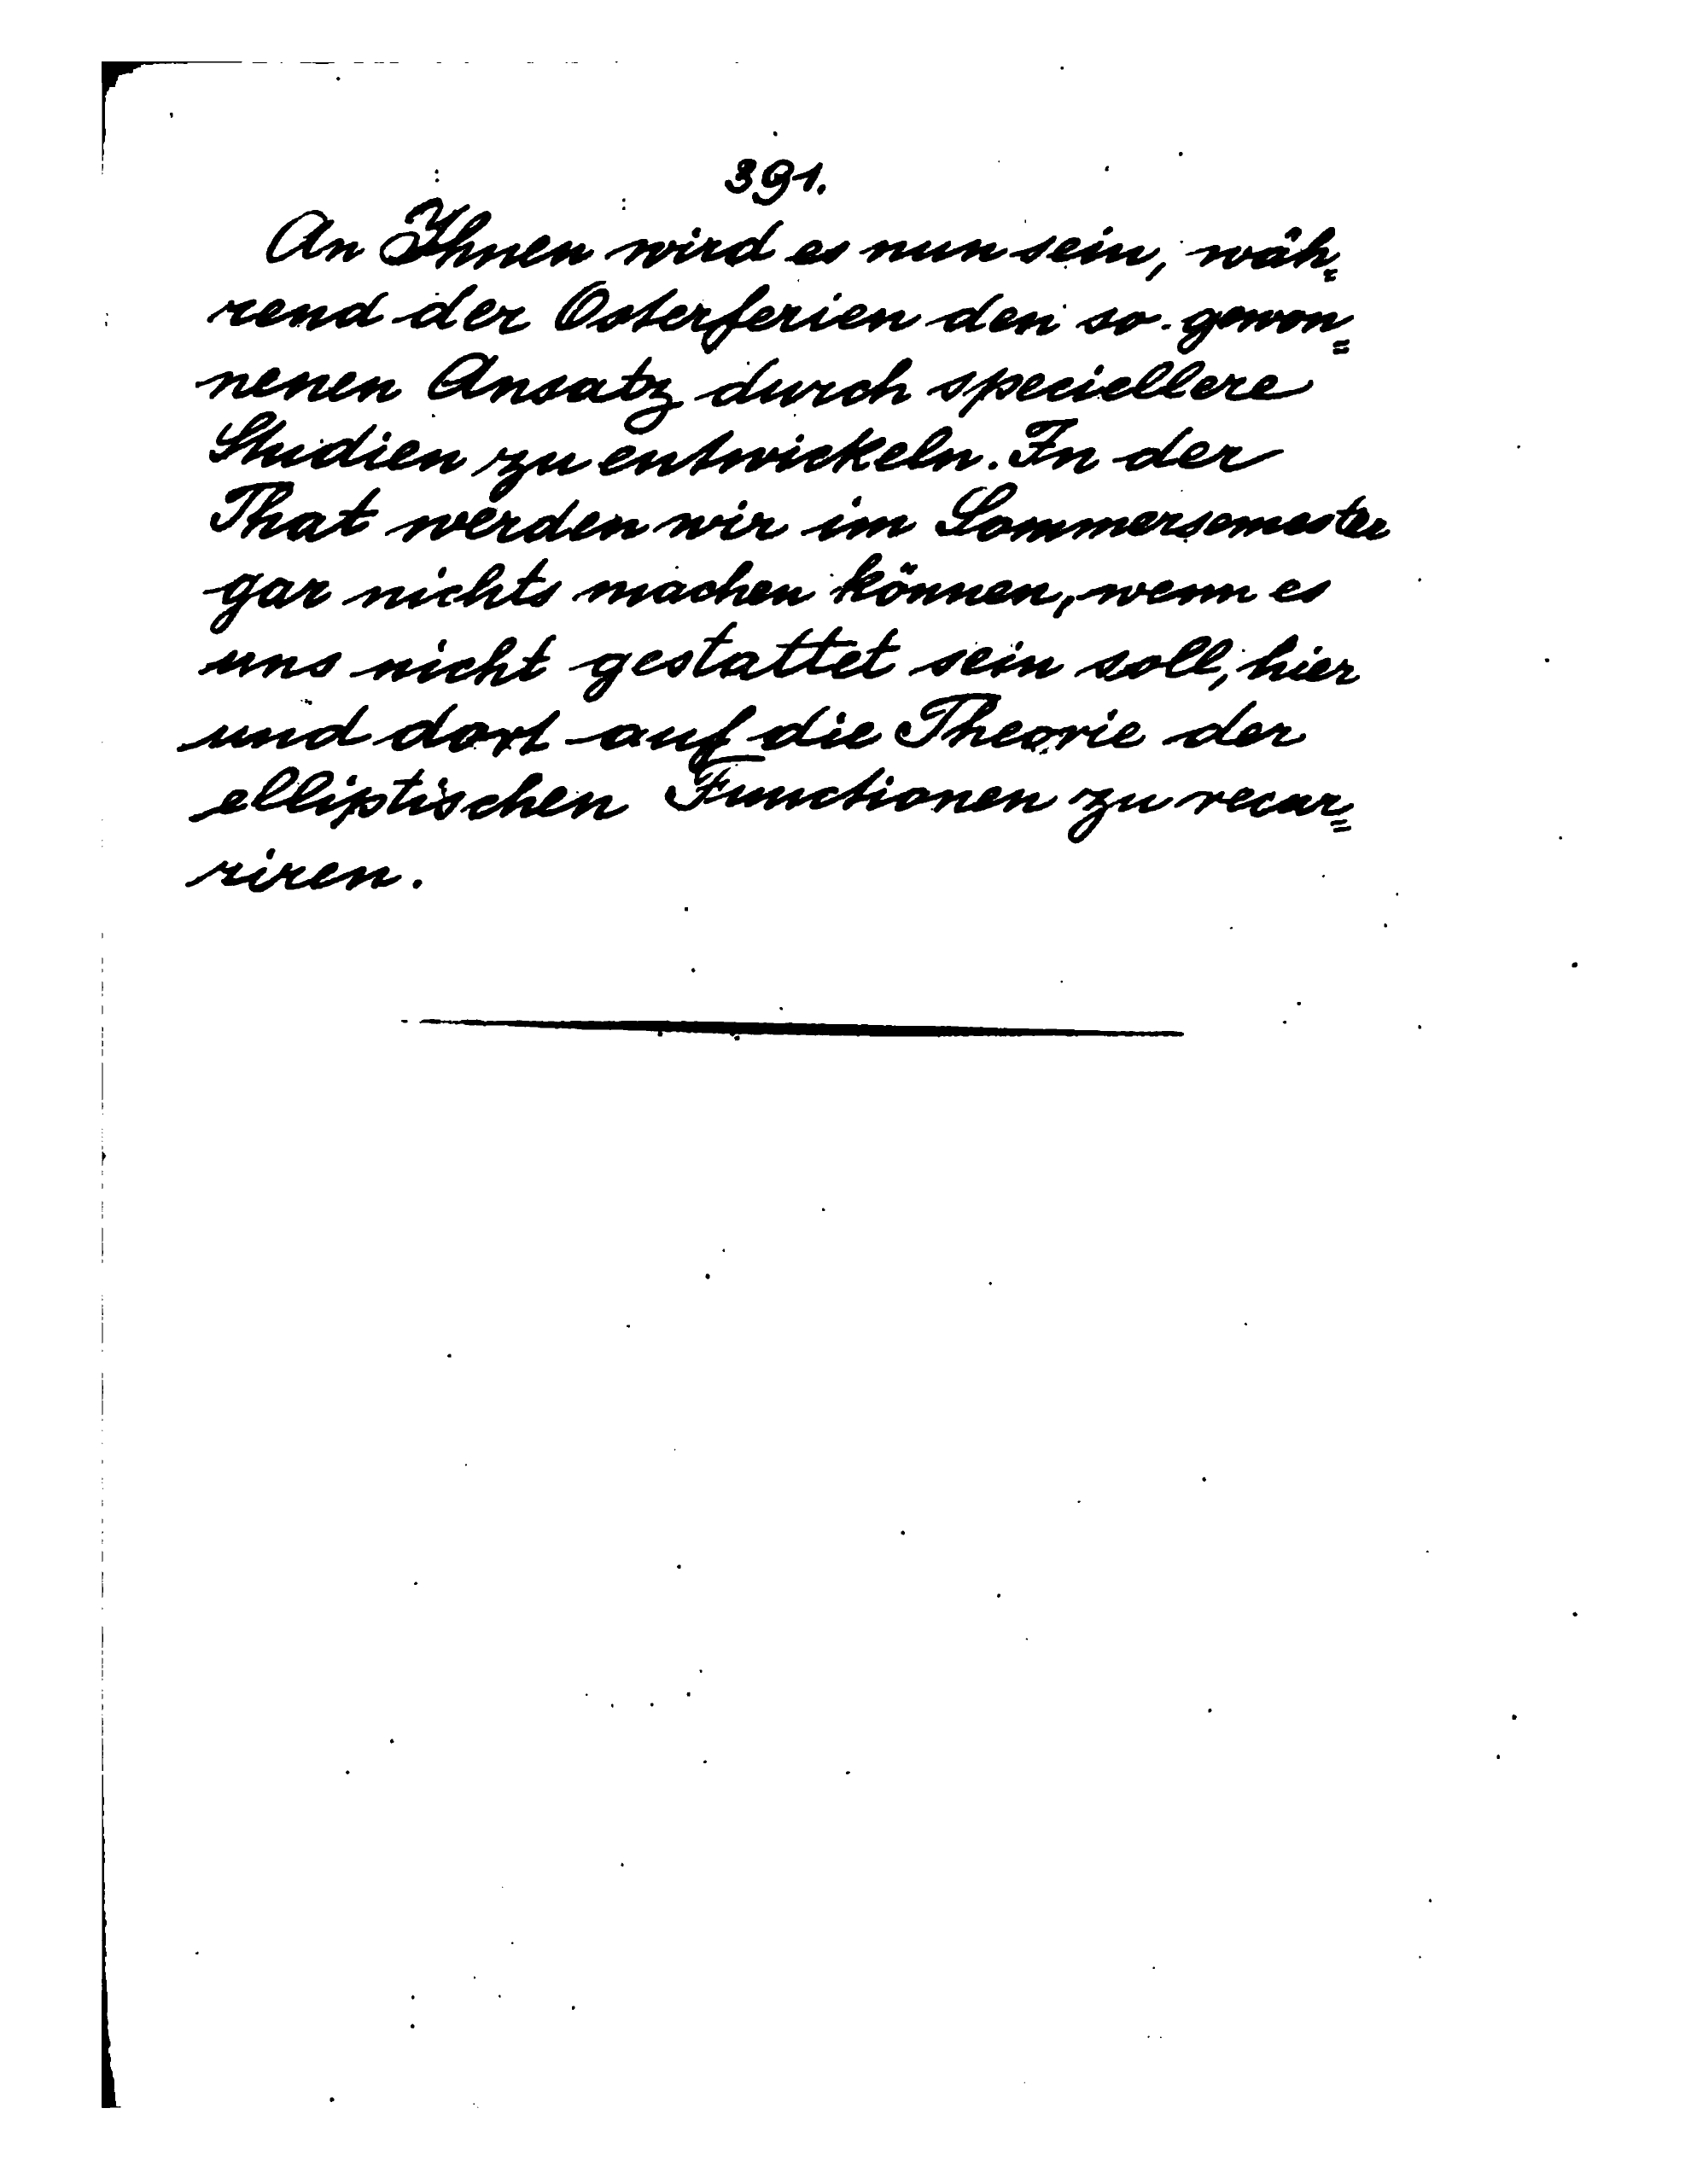 391.
An Ihnen wird es nun sein, wäh=
rend der Osterferien den so gewon=
nenen Ansatz durch speciellere
Studien zu entwickeln. In der
That werden wir im Sommersemester
gar nichts machen können, wenn es
uns nicht gestattet sein soll, hier
und dort auf die Theorie der
elliptischen Functionen zu recur=
riren.